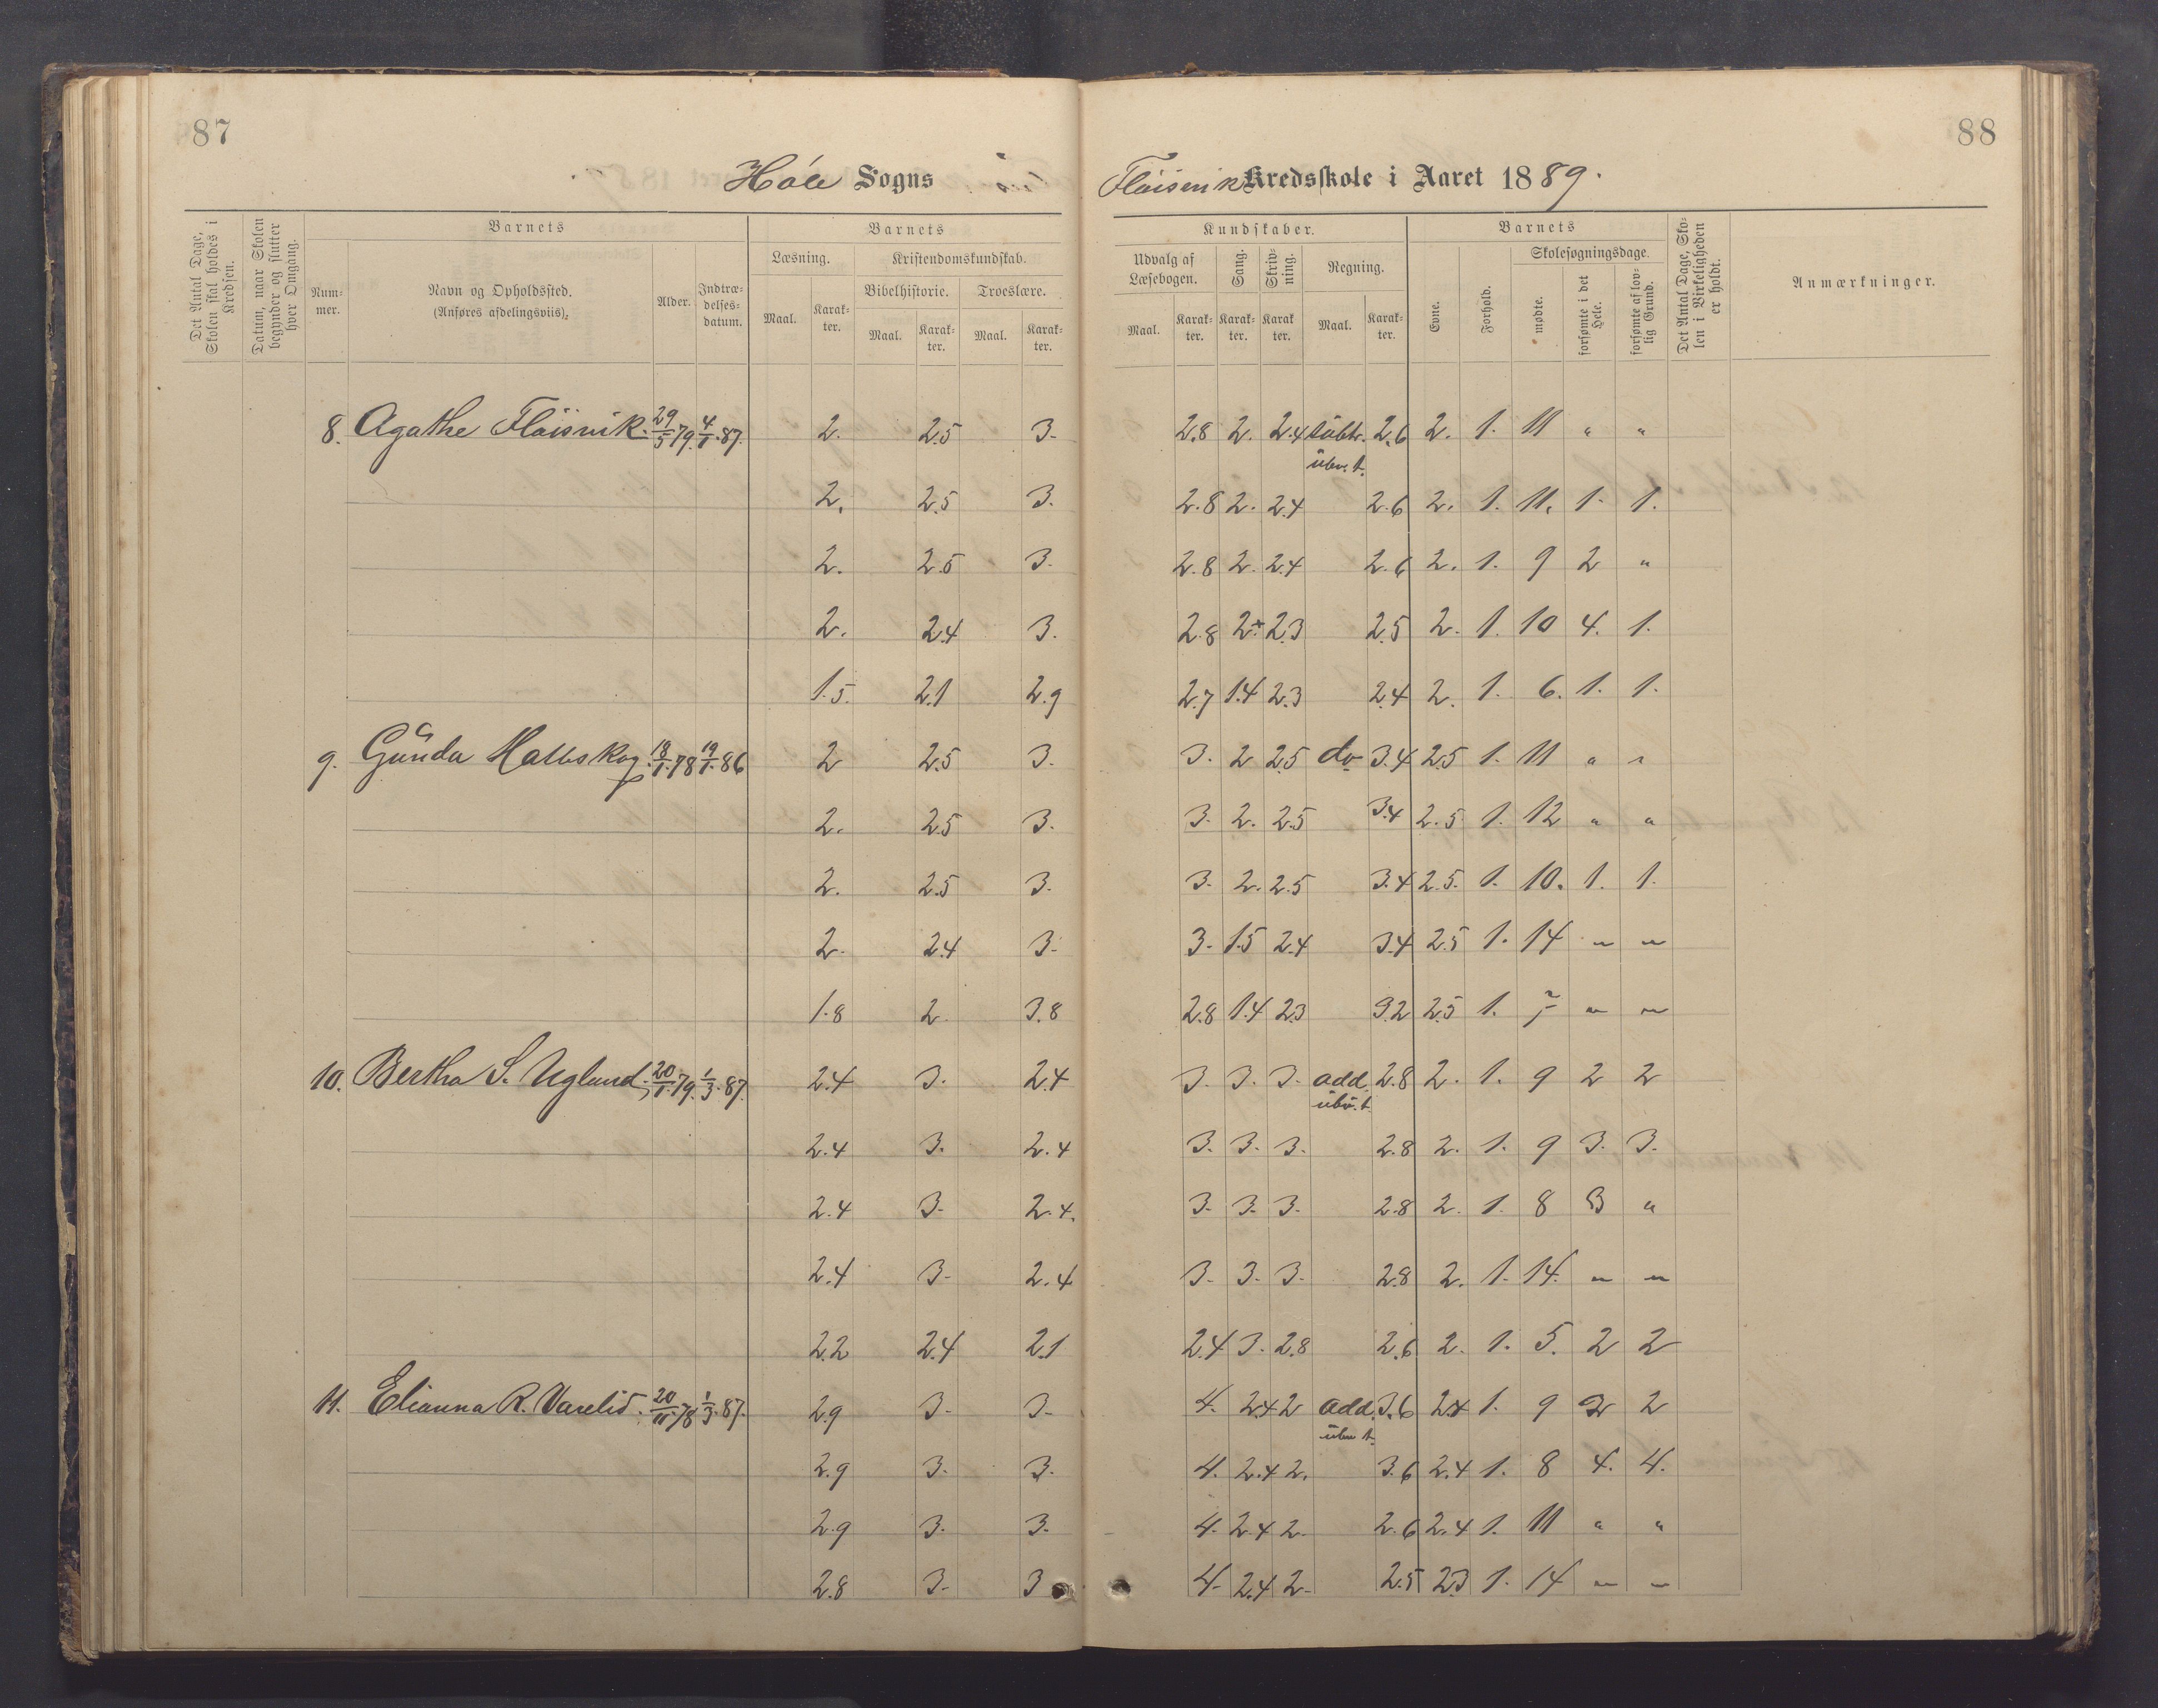 87
88
Høle Sogns
Fløisvik Kredsskole i Aaret 1889.
Det Antal Dage, Skolen skal holdes i Kredsen.
Datum, naar Skolen begynder og slutter hver Omgang.
Barnets
Num-mer.
Navn og Opholdssted.
(Anføres afdelingsviis).
Alder.
Indtræ-delses-datum.
Barnets
Læsning.
Maal.
Karak-ter.
Kristendomskundskab.
Bibelhistorie.
Maal.
Karak-ter.
Troeslære.
Maal.
Karak-ter.
Kundskaber.
Udvalg af Læsebogen.
Maal.
Karak-ter.
Sang.
Karak-ter.
Skriv-ning.
Karak-ter.
Regning.
Maal.
Karak-ter.
Barnets
Evne.
Forhold.
Skolesøgningsdage.
mødte.
forsømte i det Hele.
forsømte af lov-lig Grund.
Det Antal Dage, Sko-len i Virkeligheden er holdt.
Anmærkninger.
8. Agathe Fløisvik. 29/5 79. 4/1. 87. 2. 2.5 3. 2.8 2. 2.4 subtr. 2.6 2. 1. 11 " "
übv. t.
2. 2.5 3. 2.8 2. 2.4 2.6 2. 1. 11. 1. 1.
2. 2.5 3. 2.8 2. 2.4 2.6 2. 1. 9 2 "
2. 2.4 3. 2.8 2.+ 2.3 2.5 2. 1. 10 4. 1.
1.5. 2.1 2.9 2.7 1.4 2.3 2.4 2. 1. 6. 1. 1.
9. Gunda 18/1. 78 19/1. 86 2 2.5 3. 3. 2 2.5 do 3.4 2.5 1. 11 " "
2. 2.5 3. 3. 2. 2.5 3.4 2.5 1. 12 " "
2. 2.5 3. 3. 2. 2.5 3.4 2.5. 1. 10. 1. 1.
2. 2.4 3. 3. 1.5 2.4 3.4 2.5 1. 14 " "
1.8 2. 3.8 2.8 1.4 2.3 3.2 2.5 1. 7 " "
10. Bertha S. Uglund. 20/1. 79. 1/3. 87. 2.4 3. 2.4 3. 3. 3. add. 2.8 2. 1. 9 2 2
übv. t.
2.4 3. 2.4 3. 3. 3. 2.8 2. 1. 9 3. 3.
2.4 3. 2.4. 3. 3. 3. 2.8 2. 1. 8 3 "
2.4 3. 2.4 3. 3. 3. 2.8 2. 1. 14. " "
2.2 2.4 2.1 2.4 3. 2.8 2.6 2. 1. 5. 2 2
11. Elianna R. Varelid. 20/11. 78. 1/3. 87. 2.9 3. 3. 4. 2.4 2 add. 3.6 2.4 1. 9 2 2
übv t.
2.9 3. 3. 4. 2.4 2. 3.6 2.4 1. 8 4. 4.
2.9 3. 3. 4. 2.4 2. 2.6 2.4 1. 11 " "
2.8 3. 3 4. 2.4 2. 2.5 2.3 1. 14 " "